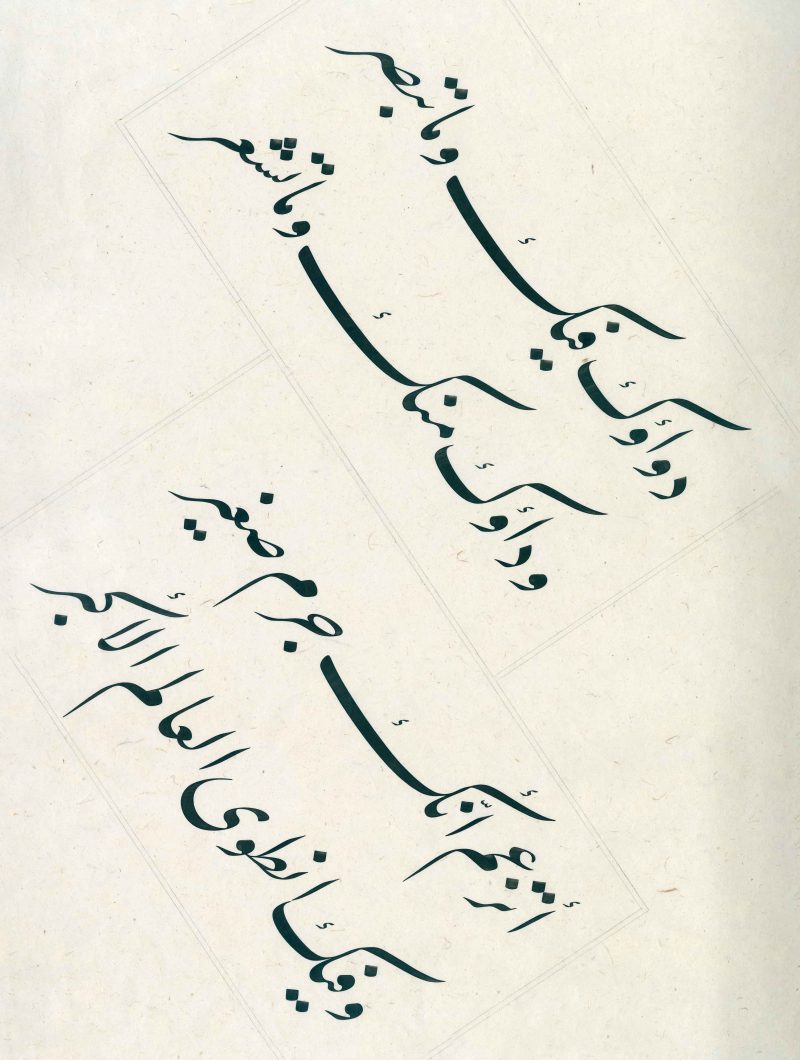 دواؤك فيك وما تبصر
وداؤك منك وما تشعر
أتزعم أنّك جرم صغير
وفيك انطوى العالم الأكبر